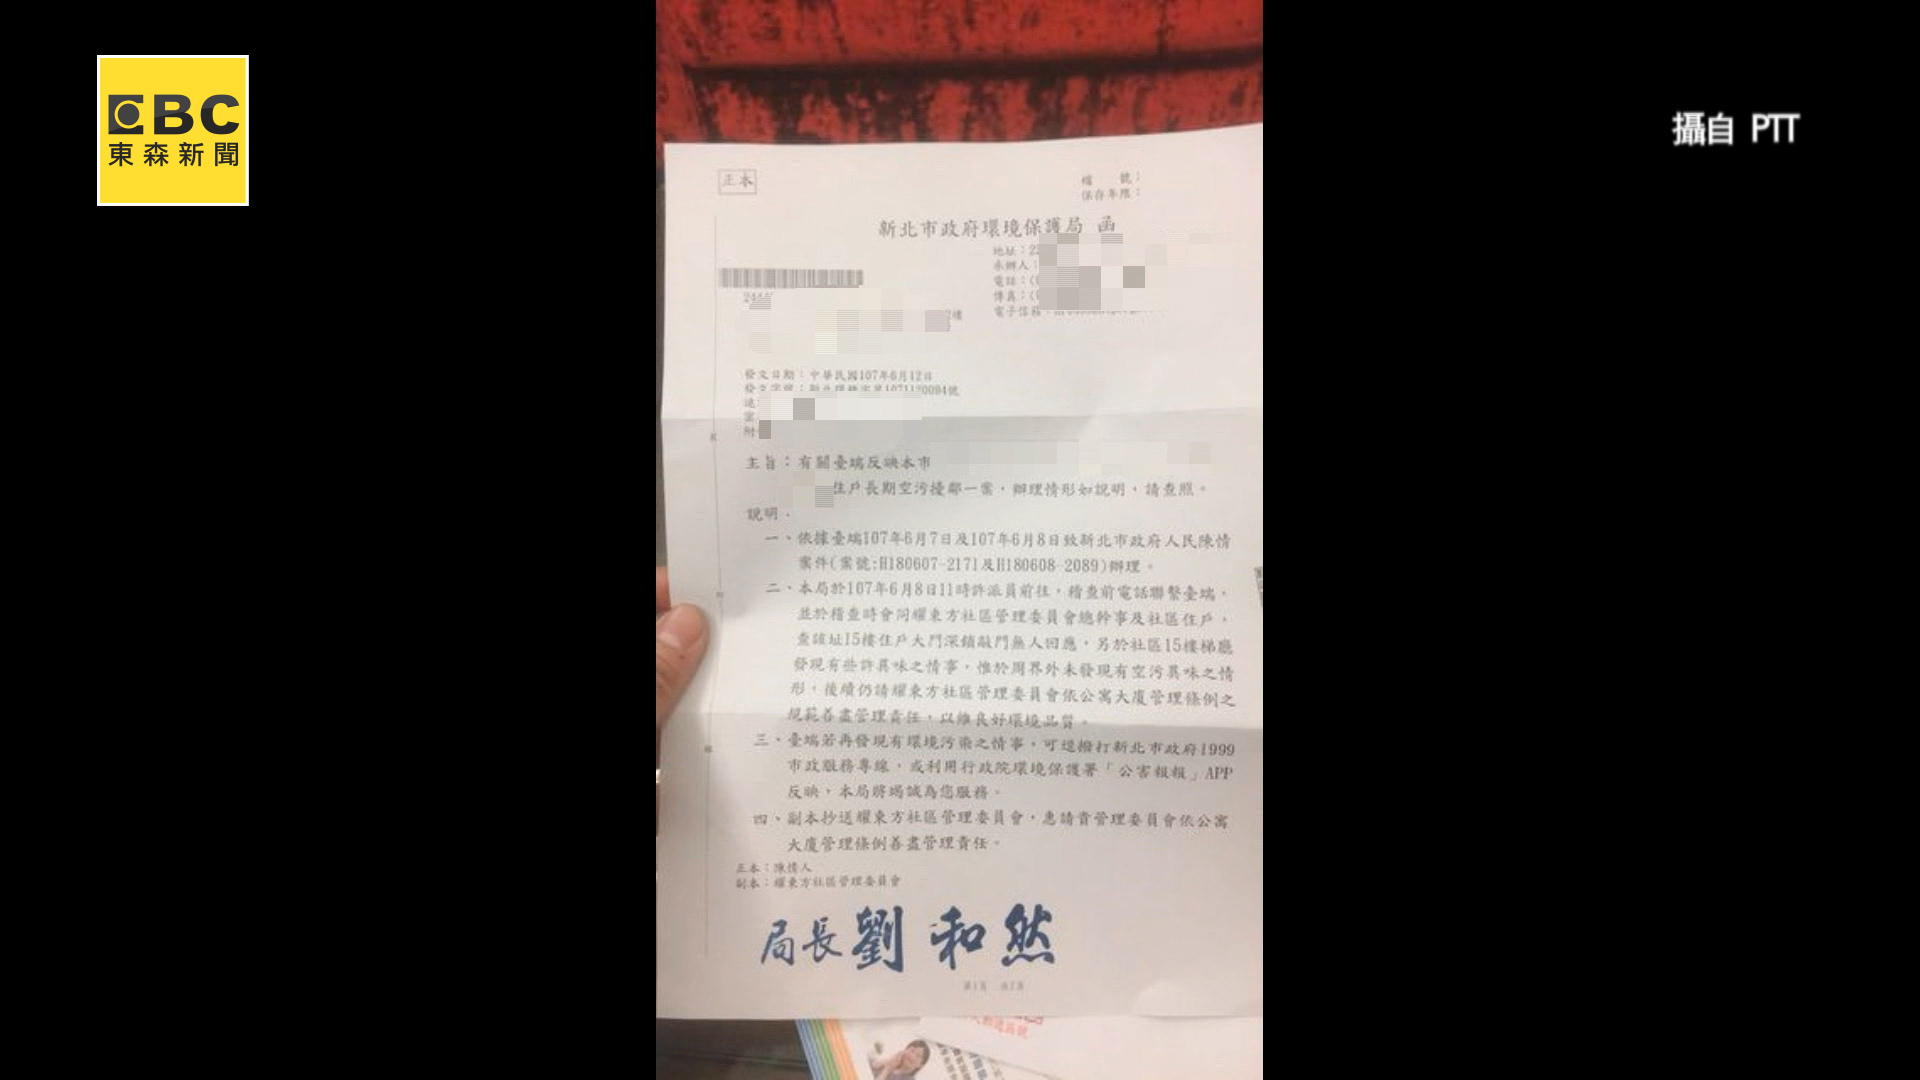 EBC
東森新聞
攝自 PTT
正本
檔 號：
保存年限：
新北市政府環境保護局 函
地址：22
承辦人：
電話：(
傳真：(
電子信箱：
2樓
發文日期：中華民國107年6月12日
發文字號：新北環稽字第1071120094號
附
主旨：有關臺端反映本市
住戶長期空污擾鄰一案，辦理情形如說明，請查照。
說明：
一、依據臺端107年6月7日及107年6月8日致新北市政府人民陳情
案件(案號:H180607-2171及H180608-2089)辦理。
二、本局於107年6月8日11時許派員前往，稽查前電話聯繫臺端，
並於稽查時會同耀東方社區管理委員會總幹事及社區住戶，
查該址15樓住戶大門深鎖敲門無人回應，另於社區15樓梯廳
發現有些許異味之情事，惟於周界外未發現有空污異味之情
形，後續仍請耀東方社區管理委員會依公寓大廈管理條例之
規範善盡管理責任，以維良好環境品質。
三、臺端若再發現有環境污染之情事，可逕撥打新北市政府1999
市政服務專線，或利用行政院環境保護署「公害報報」APP
反映，本局將竭誠為您服務。
四、副本抄送耀東方社區管理委員會，惠請貴管理委員會依公寓
大廈管理條例善盡管理責任。
正本：陳情人
副本：耀東方社區管理委員會
局長劉和然
第1頁 共2頁